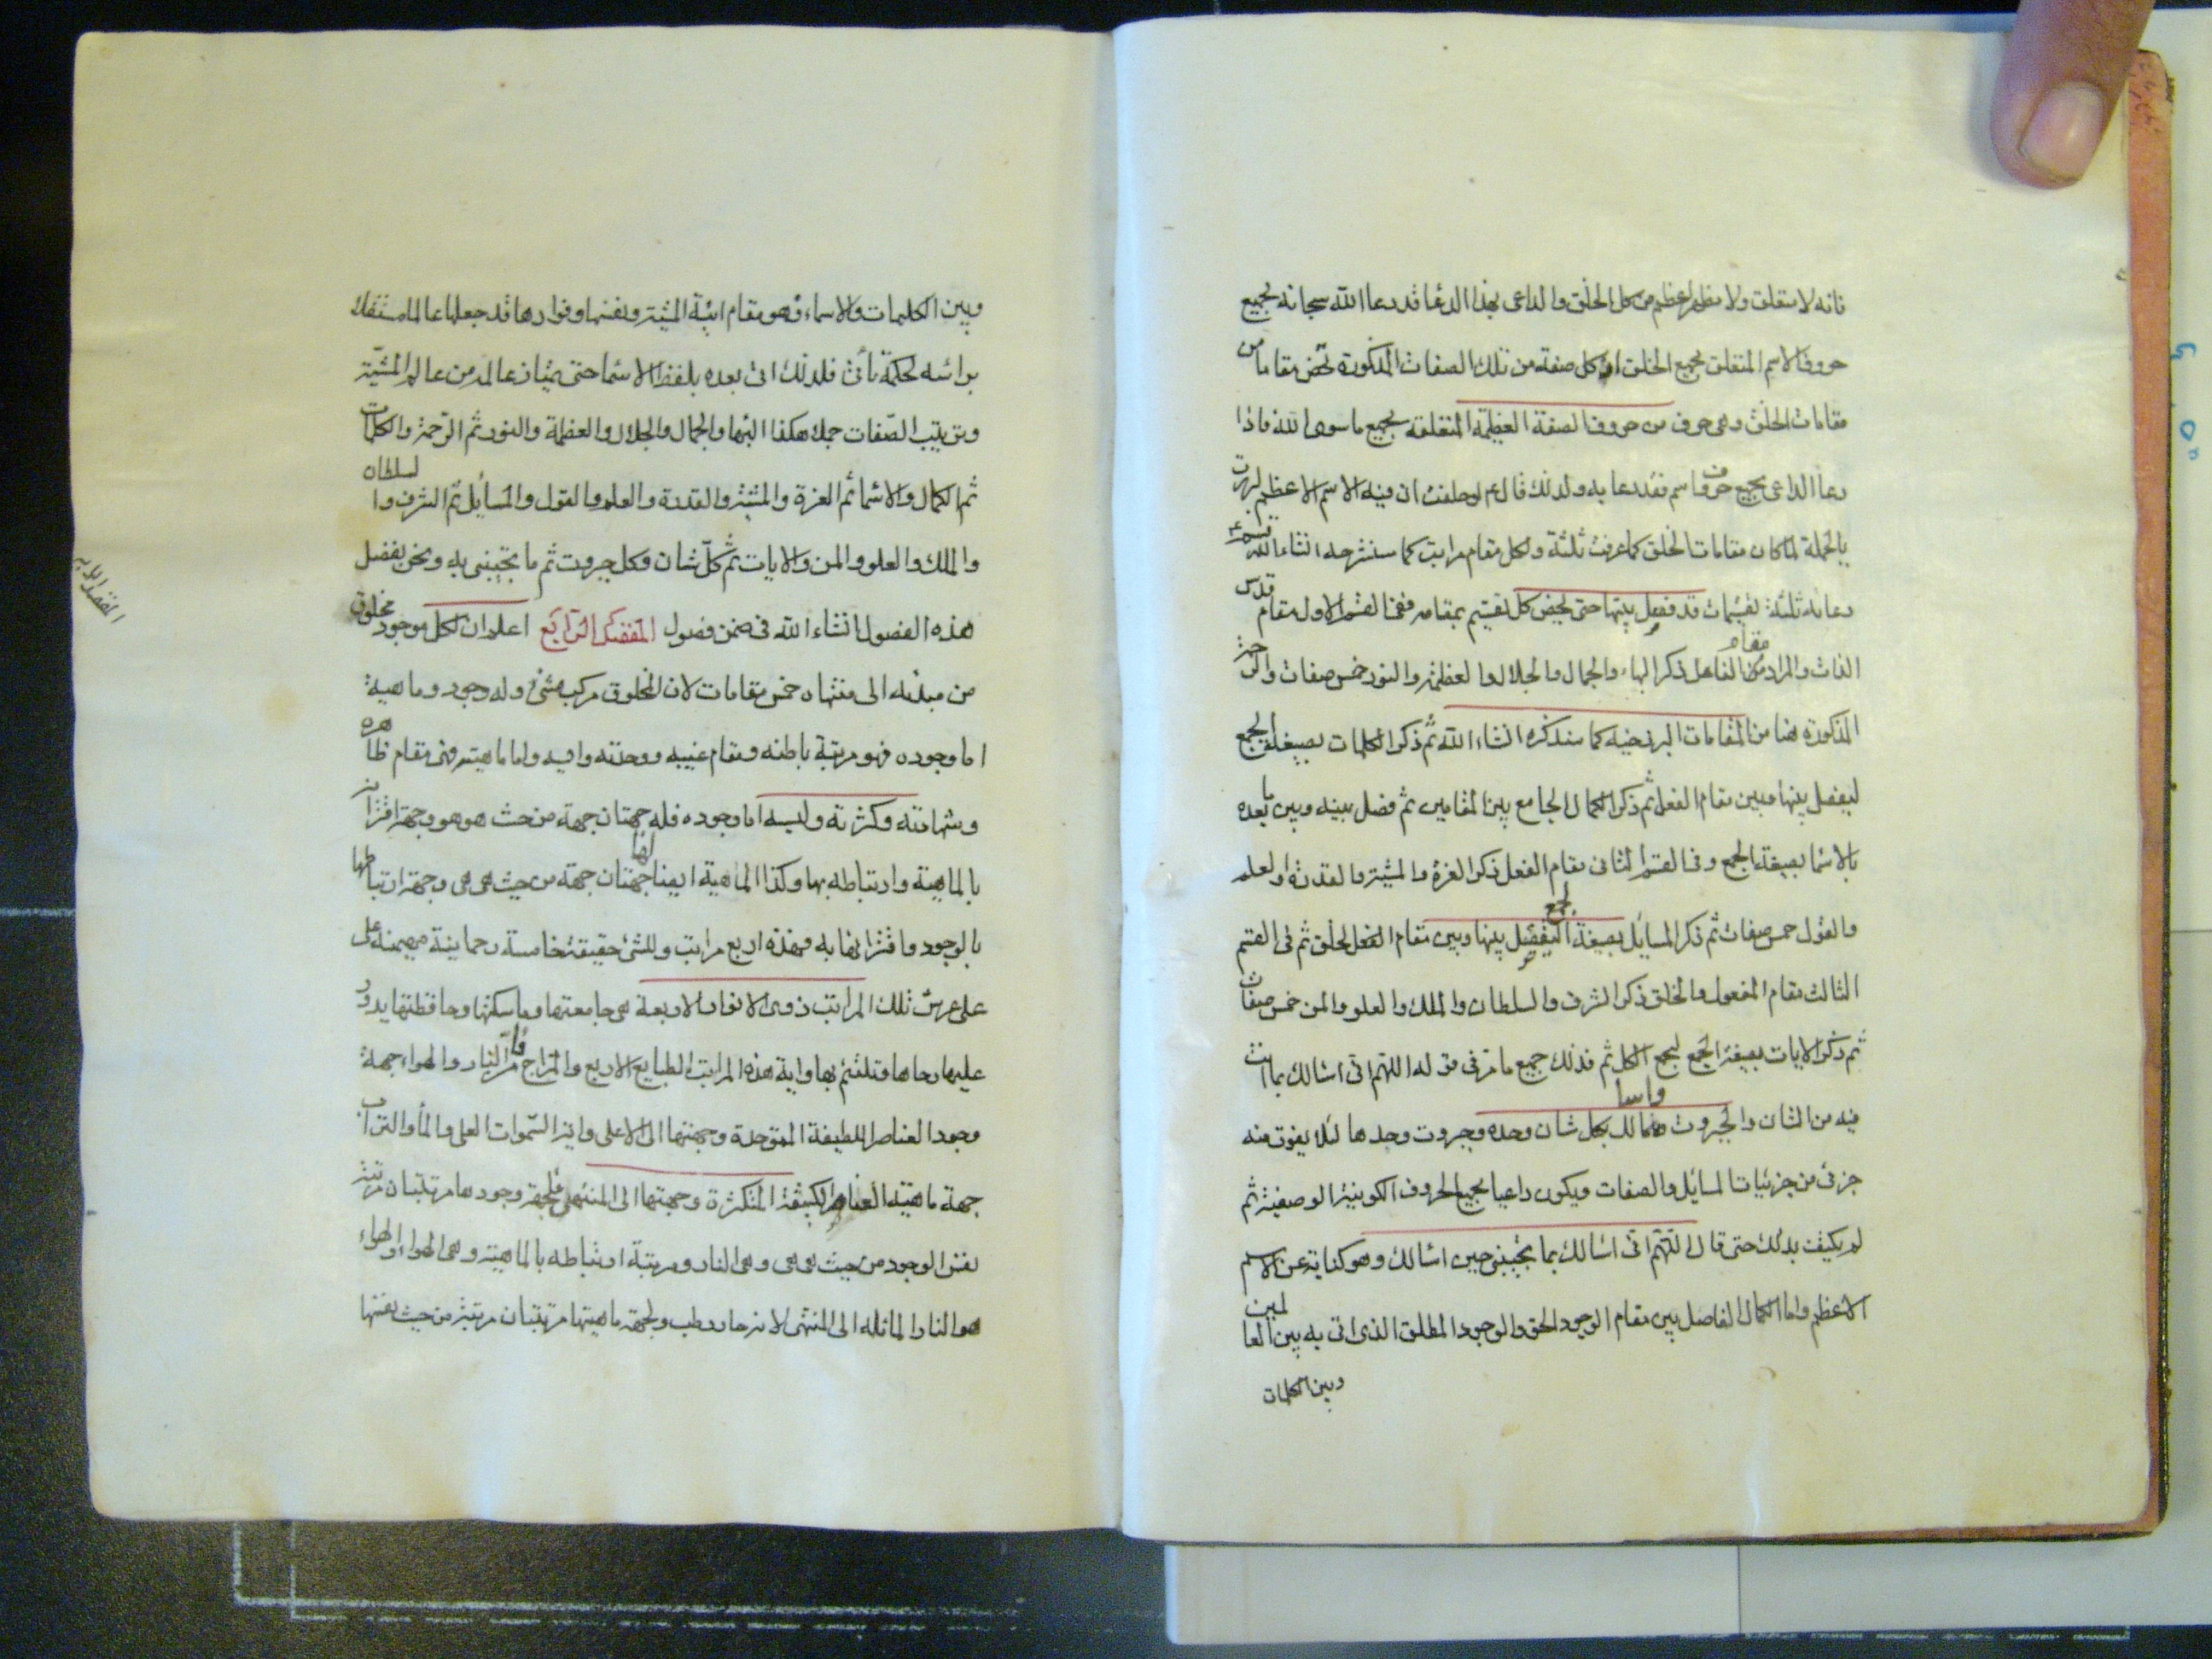 فانه لا متعلق ولا مظهر اعظم من كل الخلق والداعى بهذا الدعا قد دعا الله سبحانه بجميع
حروف الاسم المتعلق بجميع الخلق اذ كل صفة من تلك الصفات المذكورة تخص مقاما من
مقامات الخلق وهى حرف من حروف الصفة العظيمة المتعلقة بجميع ما سوى الله فاذا
دعا الداعى بجميع حروف اسم فقد دعا به ولذلك قال ع لو حلفت ان فيه الاسم الاعظم لبررت
بالجملة لما كان مقامات الخلق كما عرفت ثلثة ولكل مقام مراتب كما سنشرحه انشاء الله قسم ع
دعائه ثلثة تقسيمات قد فصل بينها حتى يخص كل تقسيم بمقامه ففى القسم الاول مقام قدس
الذات والمراد مقام الفاعل ذكر البهاء والجمال والجلال والعظمة والنور خمس صفات والرحمة
المذكورة هنا من المقامات البرزخية كما سنذكره انشاء الله ثم ذكر الكلمات بصيغة الجمع
ليفصل بينها وبين مقام الفعل ثم ذكر الكمال الجامع بين المقامين ثم فصل بينه وبين ما بعده
بالاسما بصيغة الجمع وفى القسم الثانى مقام الفعل ذكر العزة والمشية والقدرة والعلم
والقول خمس صفات ثم ذكر المسايل بصيغة الجمع ليفصل بينها وبين مقام الخلق ثم فى القسم
الثالث مقام المفعول والخلق ذكر الشرف والسلطان والملك والعلو والمن خمس صفات
ثم ذكر الايات بصيغة الجمع لجمع الكل ثم فذلك جميع ما مر فى قوله اللهم انى اسالك بما انت
فيه من الشان والجبروت واسالك بكل شان وحده وجبروت وحدها لئلا يفوت منه
جزئى من جزئيات المسايل والصفات ويكون داعيا بجميع الحروف الكونية الوصفية ثم
لم يكيف بذلك حتى قال اللهم انى اسالك بما تجيبنى حين اسالك وهو كناية عن الاسم
الاعظم واما الكمال الفاصل بين مقام الوجود الحق والوجود المطلق الذى اتى به بين العالمين
وبين الكلمات
وبين الكلمات والاسماء فهو مقام انية المشية ونفسها وفوادها قد جعلها عالما مستقلا
براسه لحكمة تأتى فلذلك اتى بعده بلفظ الاسما حتى يمتاز عالمه من عالم المشية
وترتيب الصفات جملة هكذا البها والجمال والجلال والعظمة والنور ثم الرحمة والكلمات
ثم الكمال والاسما ثم العزة والمشية والقدرة والعلم والقول والمسايل ثم الشرف والسلطان
والملك والعلو والمن والايات ثم كل شان وكل جبروت ثم ما تجيبنى به ونحن نفصل
هذه الفصول انشاء الله فى ضمن فصول الفصل الرابع اعلم ان لكل موجود مخلوق
الفصل الرابع
من مبدئه الى منتهاه خمس مقامات لان المخلوق مركب مثنى وله وجود وماهية
اما وجوده فهو مرتبة باطنه ومقام غيبه ووحدته وايسه واما ماهيته فهى مقام ظاهره
وشهادته وكثرته وليسه اما وجوده فله جهتان جهة من حيث هو هو وجهة اقترانه
بالماهية وارتباطه بها وكذا الماهية ايضا لها جهتان جهة من حيث هى هى وجهة ارتباطها
بالوجود واقترانها به فهذه اربع مراتب وللشئ حقيقة خامسة رحمانية مهيمنة على
على عرش تلك المراتب ذوى الانوار الاربعة هى جامعتها وماسكتها وحافظتها يدور
عليها رحاها وتلتئم بها واية هذه المراتب الطبايع الاربع والمزاج فان النار والهواء جهة
وجود العناصر اللطيفة المتوحدة وجهتها الى الاعلى واية السموات العلى والمأ والتراب
جهة ماهية العناصر الكثيفة المتكثرة وجهتها الى المنتهى فلجهة وجودها مرتبتان مرتبة
نفس الوجود من حيث هى هى وهى النار ومرتبة ارتباطه بالماهية وهى الهواء والهواء
هو النار المائلة الى المنتهى لانه حار رطب ولجهة ماهيتها مرتبتان مرتبة من حيث نفسها